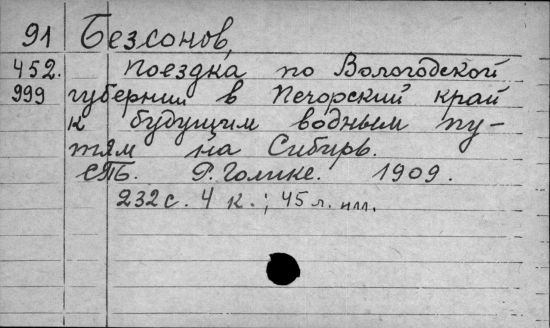 91 Безсонов,
452. Поездка по Вологодской
999 губернии в Печорский край
к будущим водным пу-
тям на Сибирь.
СПБ. Р. Голике. 1909.
232 с. 4 к.; 45 л. илл.